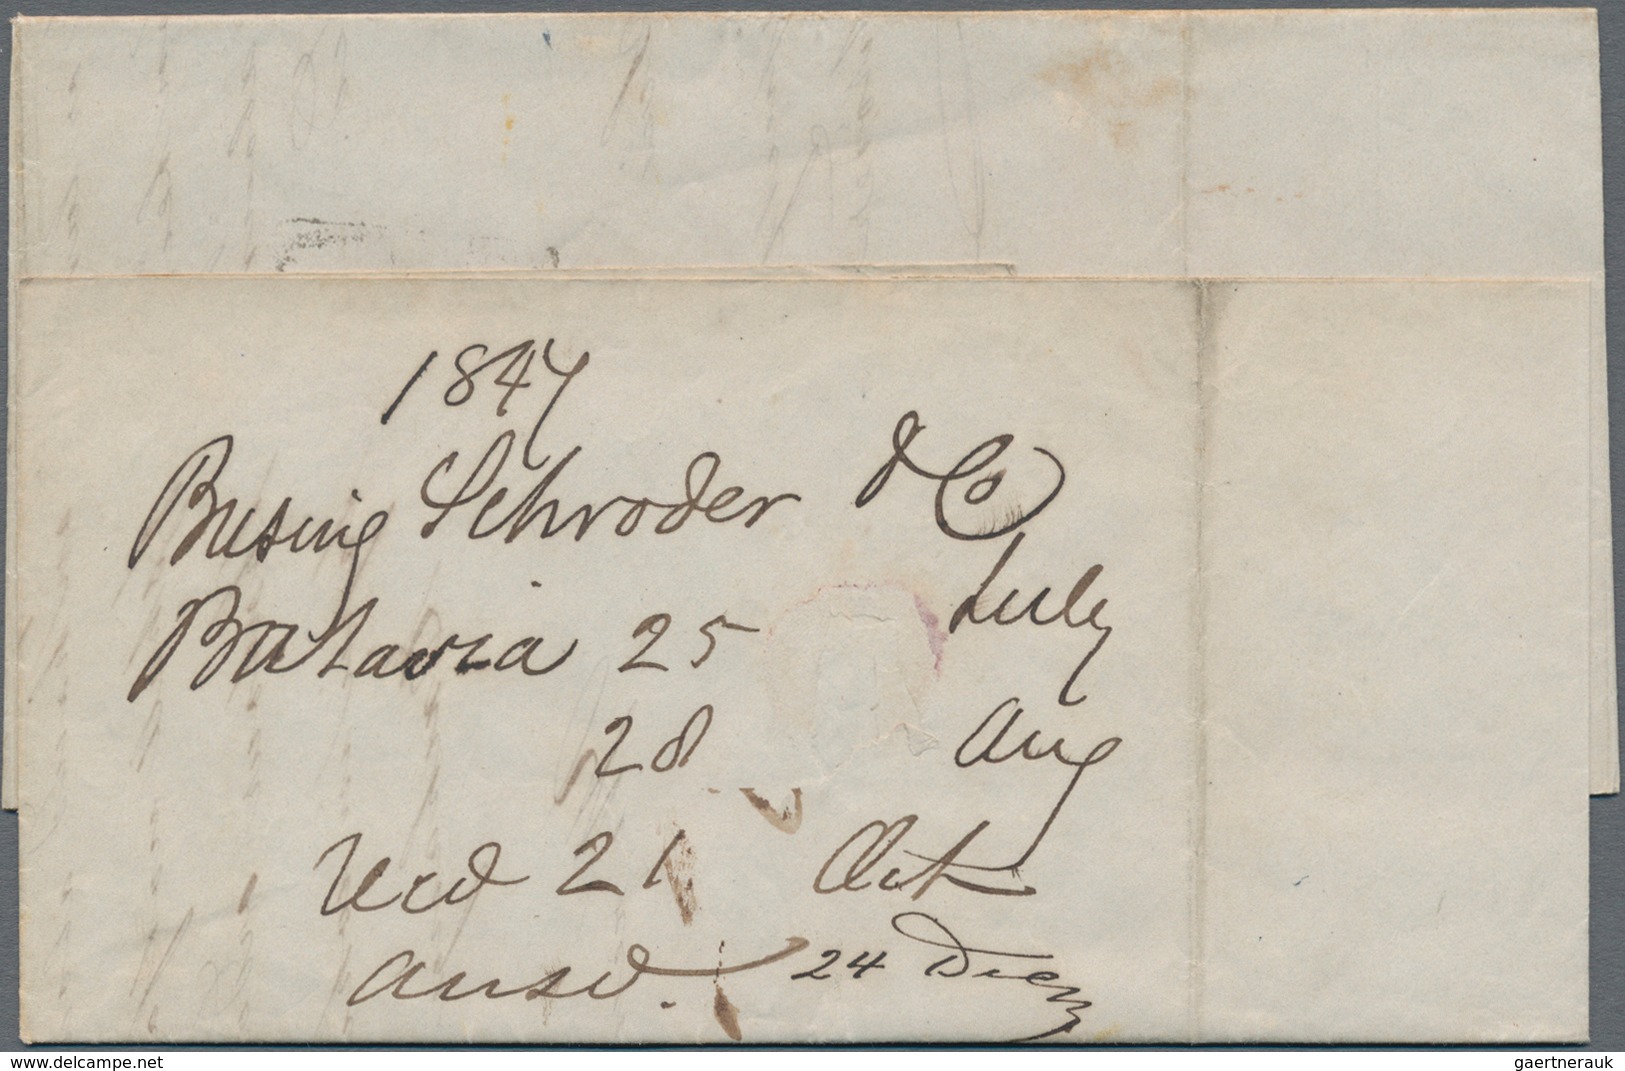 1847
Busing Schroder & Co
Batavia 25 July
28 Aug
Recd 21 Oct
ansd. 24 Decm
www.delcampe.net
gaertnerauk